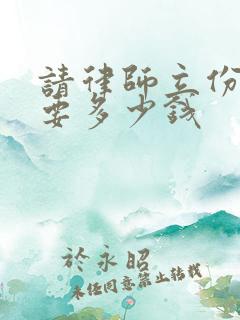 請律師立份
要多少錢
於永昭
未經同意禁止轉載